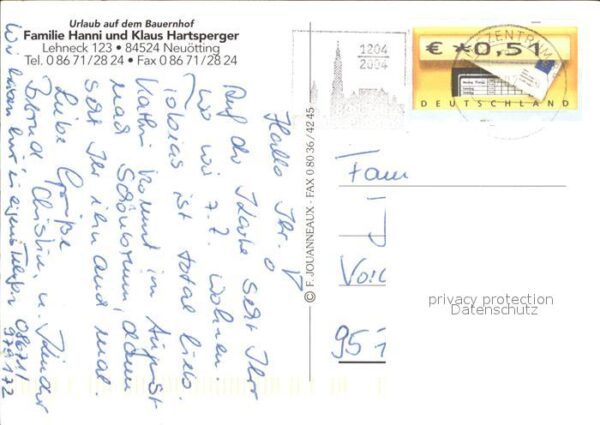 Urlaub auf dem Bauernhof
Familie Hanni und Klaus Hartsperger
Lehneck 123 • 84524 Neuötting
Tel. 0 86 71/28 24 • Fax 0 86 71/28 24
1204
2004
€ *0,51
DEUTSCHLAND
© F. JOUANNEAUX - FAX 0 80 36 / 42 45
Hallo Ihr
Auf der Karte seht Ihr
wo wir z.Z. wohnen.
Tobias ist total lieb.
Kathi kommt im August
nach Schönbrunn, dann
seht Ihr ihn auch mal.
Liebe Grüße
Christin u. Kinder
Wir haben hier in eigenes Telefon 08671/
979172
Fam
Voi
951
privacy protection
Datenschutz